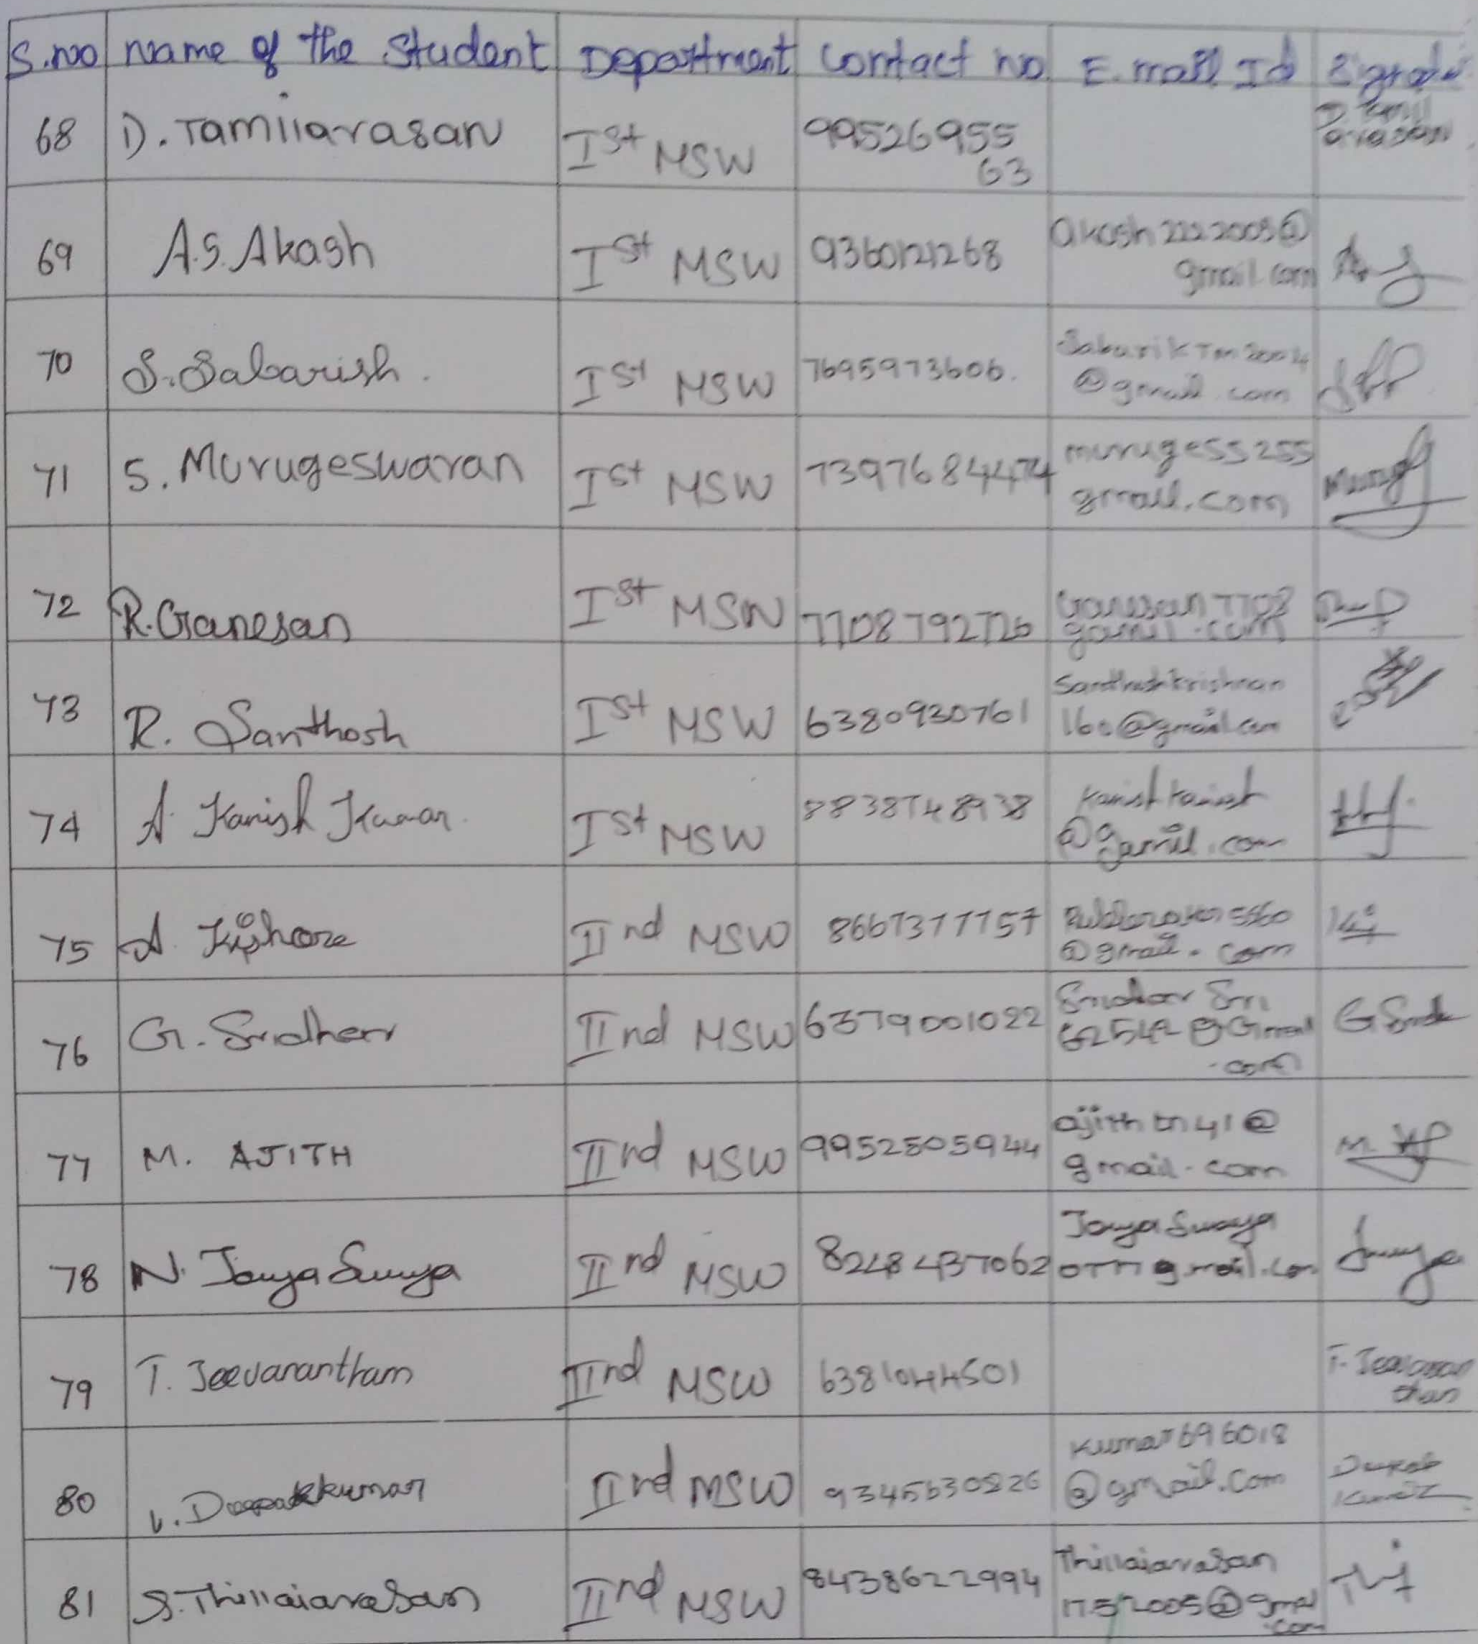 S.no Name of the Student Department Contact no E.mail Id
68 D. Tamilarasan Ist MSW 9952695563 D. Tamil arasan
69 A.S. Akash Ist MSW 9360121268 akash2222003@gmail.com
70 S. Sabarish. Ist MSW 7695973606. @gmail.com
71 S. Murugeswaran Ist MSW 7397684474 murugess255 gmail.com
72 R. Ganesan Ist MSW 7708792726 Ganesan7708
73 R. Santhosh Ist MSW 6380930761 Santhoshkrishnan 160@gmail.com
74 A. Kanish Kumar. Ist MSW 8838748938 @gamil.com
75 A. Kishore IInd MSW 8667377157 @gmail.com
76 G. Sridharr IInd MSW 6379001022 62542@Gmail.com
77 M. AJITH IInd MSW 9952505944 ajithtn41@gmail.com
78 N. Jaya Surya IInd MSW 8248437062 Jaya Surya
79 T. Jeevanantham IInd MSW 6381044501
80 V. Deepakkumar IInd MSW 9345630826 kumar696018@gmail.com Deepak Kumar
81 S. Thillaiarasan IInd MSW 8438622994 Thillaiarasan 1752005@gmail.com